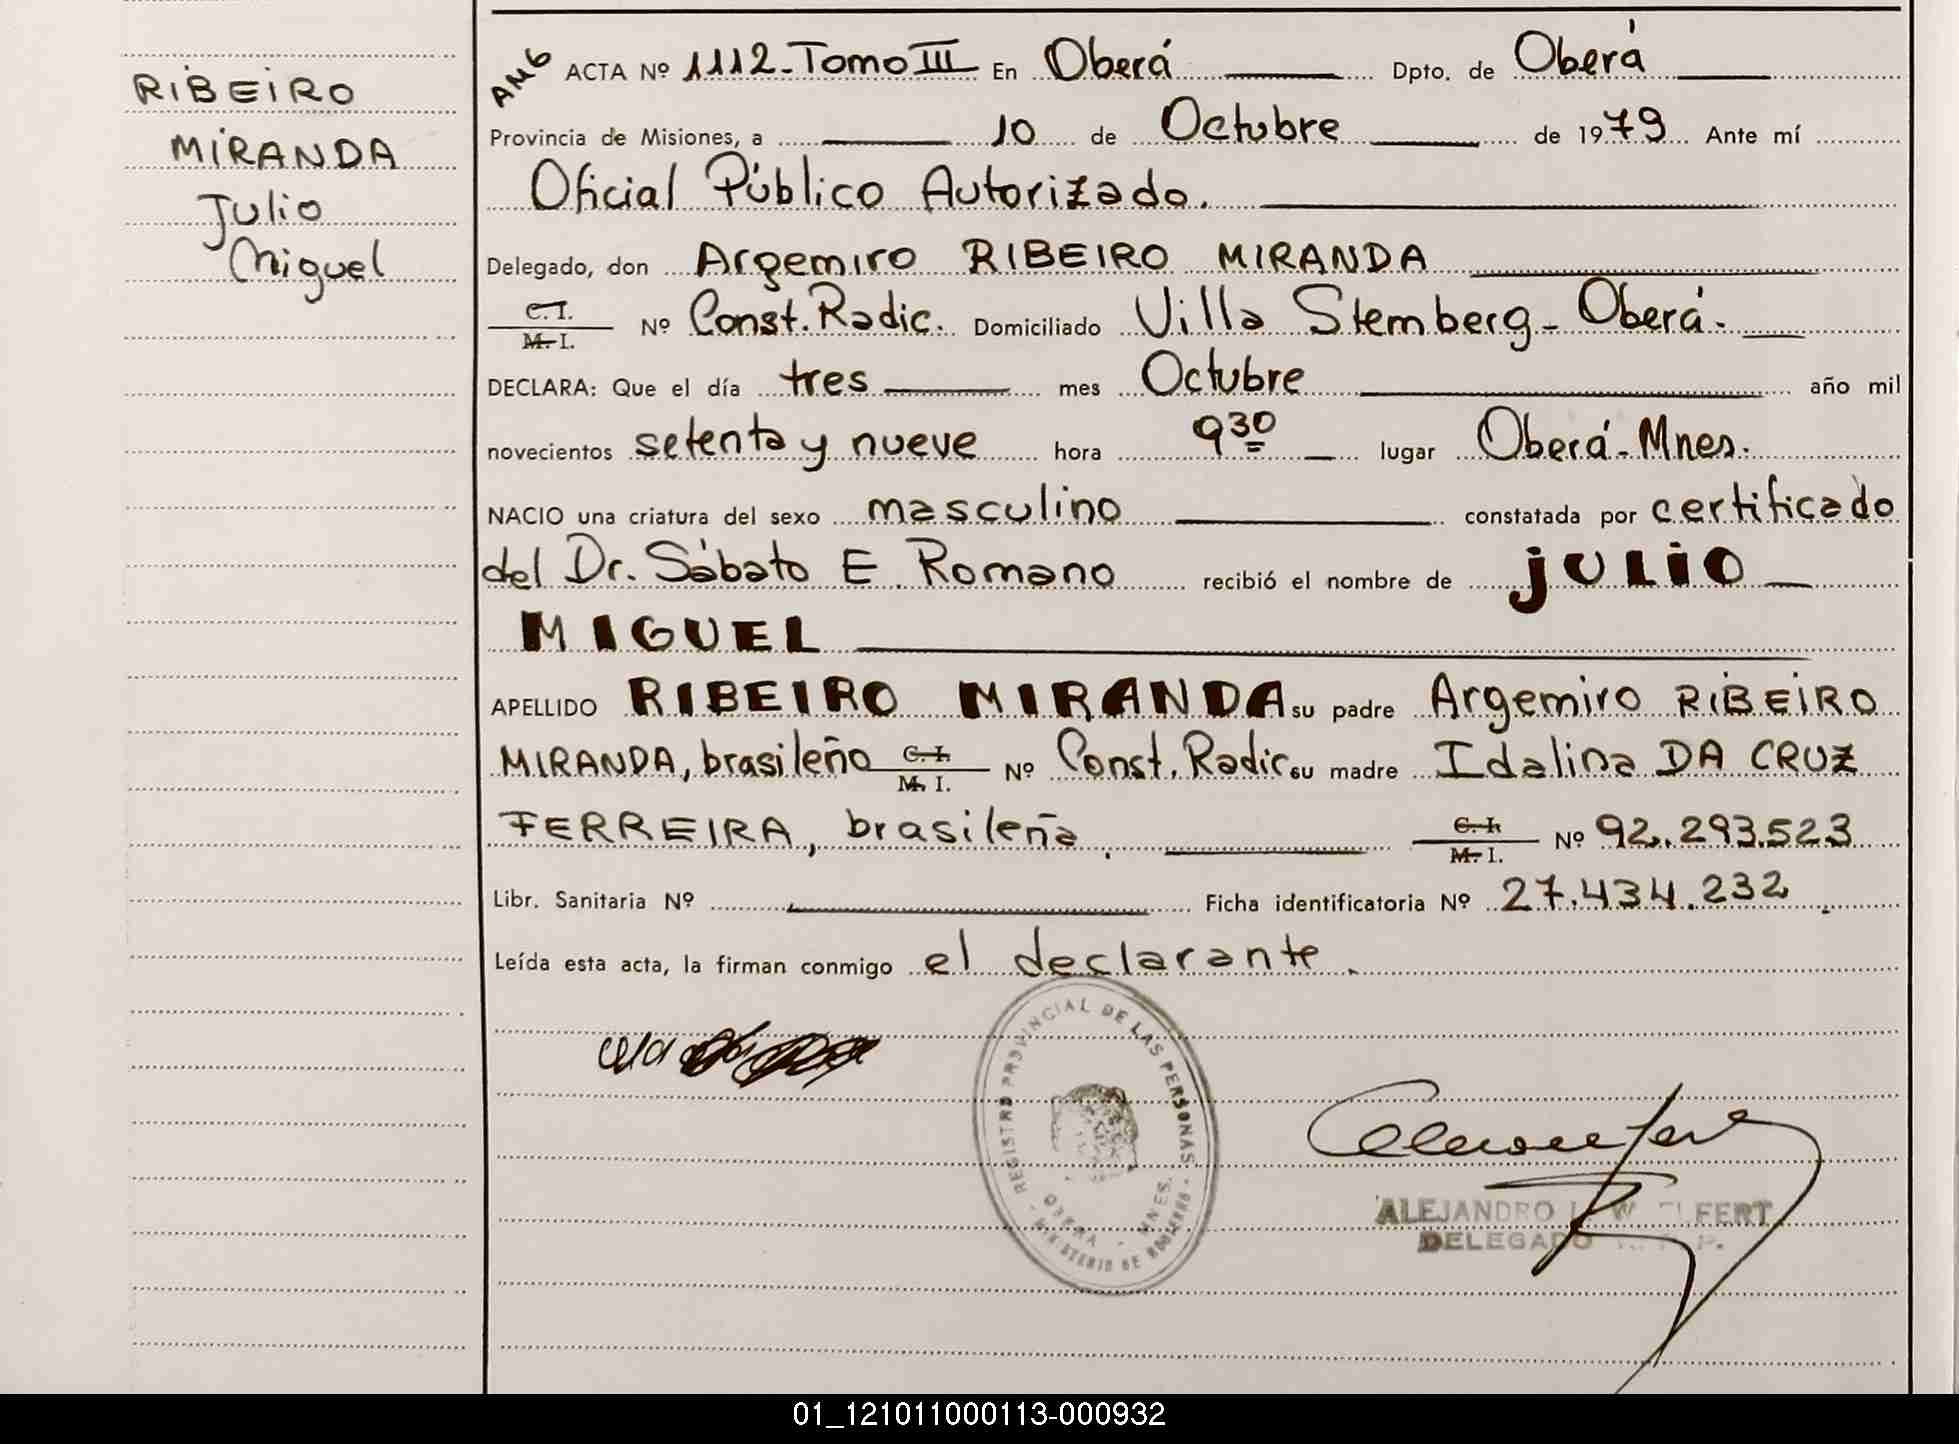 RIBEIRO
MIRANDA
Julio
Miguel
ACTA Nº 1112-Tomo III En Oberá Dpto. de Oberá
Provincia de Misiones, a 10 de Octubre de 1979 Ante mí
Oficial Público Autorizado.
Delegado, don Argemiro RIBEIRO MIRANDA
C.I. M.I. Nº Const. Radic. Domiciliado Villa Stemberg - Oberá.
DECLARA: Que el día tres mes Octubre año mil
novecientos setenta y nueve hora 9 30 lugar Oberá - Mnes.
NACIO una criatura del sexo masculino constatada por certificado
del Dr. Sábato E. Romano recibió el nombre de JULIO
MIGUEL
APELLIDO RIBEIRO MIRANDA su padre Argemiro RIBEIRO
MIRANDA, brasileño C.I. M.I. Nº Const. Radic su madre Idalina DA CRUZ
FERREIRA, brasileña. C.I. M.I. Nº 92.293.523
Libr. Sanitaria Nº Ficha identificatoria Nº 27.434.232
Leída esta acta, la firman conmigo el declarante.
REGISTRO PROVINCIAL DE LAS PERSONAS
OBERA - MNES.
MINISTERIO DE GOBIERNO
ALEJANDRO
DELEGADO
01_121011000113-000932